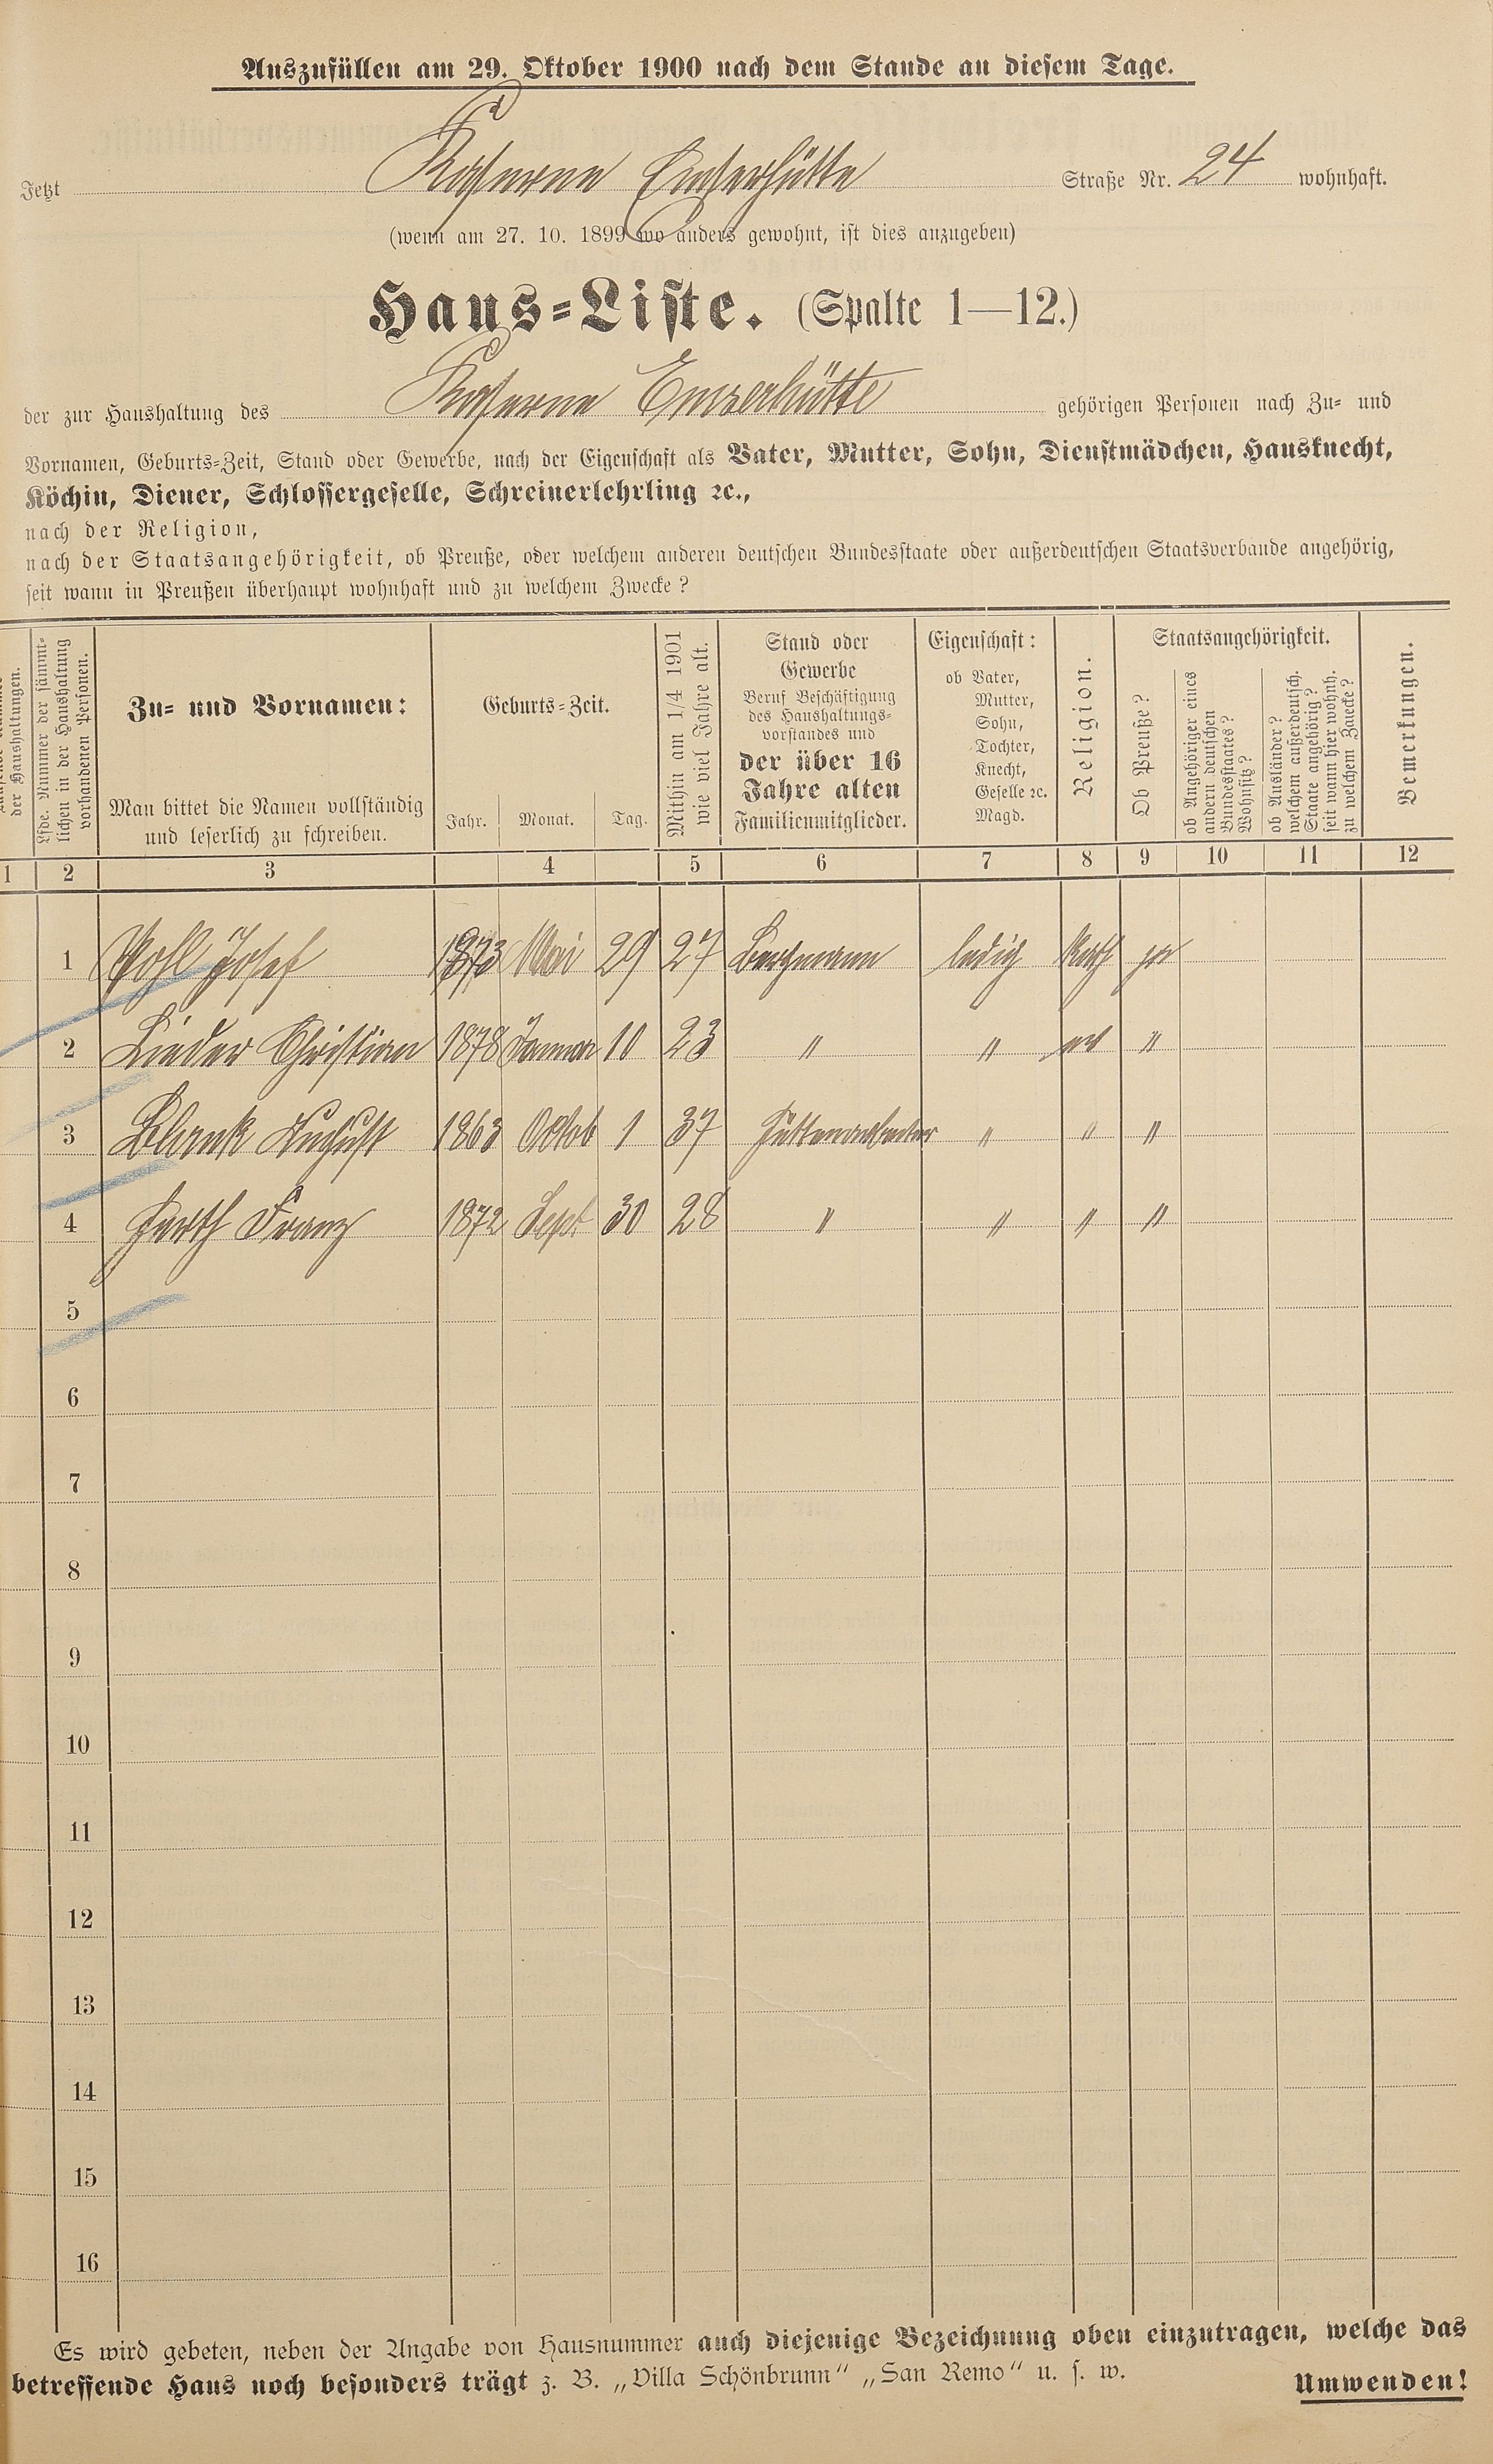 Auszufüllen am 29. Oktober 1900 nach dem Stande an diesem Tage.
Jetzt Kaserne Emserhütte Straße Nr. 24 wohnhaft.
(wenn am 27. 10. 1899 wo anders gewohnt, ist dies anzugeben)
Haus-Liste. (Spalte 1—12.)
der zur Haushaltung des Kaserne Emserhütte gehörigen Personen nach Zu- und
Vornamen, Geburts-Zeit, Stand oder Gewerbe, nach der Eigenschaft als Vater, Mutter, Sohn, Dienstmädchen, Hausknecht,
Köchin, Diener, Schlossergeselle, Schreinerlehrling ꝛc.,
nach der Religion,
nach der Staatsangehörigkeit, ob Preuße, oder welchem anderen deutschen Bundesstaate oder außerdeutschen Staatsverbande angehörig,
seit wann in Preußen überhaupt wohnhaft und zu welchem Zwecke?
der Haushaltungen.
Lfde. Nummer der sämmt-
lichen in der Haushaltung
vorhandenen Personen.
Zu- und Vornamen:
Man bittet die Namen vollständig
und leserlich zu schreiben.
Geburts-Zeit.
Jahr. Monat. Tag.
Mithin am 1/4 1901
wie viel Jahre alt.
Stand oder
Gewerbe
Beruf Beschäftigung
des Haushaltungs-
vorstandes und
der über 16
Jahre alten
Familienmitglieder.
Eigenschaft:
ob Vater,
Mutter,
Sohn,
Tochter,
Knecht,
Geselle ꝛc.
Magd.
Religion.
Staatsangehörigkeit.
Ob Preuße?
ob Angehöriger eines
andern deutschen
Bundesstaates?
Wohnsitz?
ob Ausländer?
welchem außerdeutsch.
Staate angehörig?
seit wann hier wohnh.
zu welchem Zwecke?
Bemerkungen.
1 2 3 4 5 6 7 8 9 10 11 12
1 Pohl Josef 1873 Mai 29 27 Bergmann ledig Kath ja
2 Lieder Christian 1878 Januar 10 23 " " ev "
3 Blank August 1863 Oktob 1 37 Hüttenarbeiter " " "
4 Furth Franz 1872 Sept 30 28 " " " "
5
6
7
8
9
10
11
12
13
14
15
16
Es wird gebeten, neben der Angabe von Hausnummer auch diejenige Bezeichnung oben einzutragen, welche das
betreffende Haus noch besonders trägt z. B. „Villa Schönbrunn“ „San Remo“ u. s. w.
Umwenden!